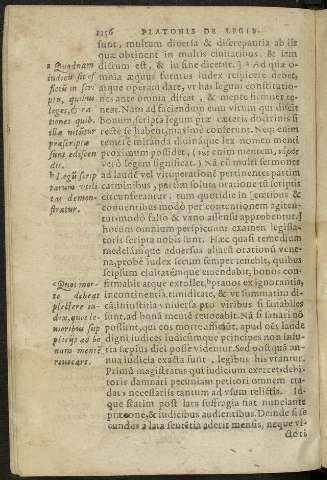 1156 PLATONIS DE LEGIB.
sunt, multum diversa & discrepantia ab iis
quæ obtinent in multis civitatibus. & iam
dictum est, & in fine dicetur.
omnia æquus futurus iudex respicere debet,
atque operam dare, ut has legum constitutio-
nes ante omnia discat, & mente firmiter te-
neat. Nam ad faciendum eum virum qui dicit
bonum, scripta legum præ cæteris doctrinis si
recte se habent, maxime conferunt. Neq; enim
temere miranda divináque lex nomen menti
proximum possidet, enim mentem,
vero legem significat.) Nã cũ multi sermones
ad laudē vel vituperationē pertinentes partim
carminibus, partim soluta oratione tũ scriptis
circunferantur, tum quotidie in cœtibus &
conventibus modò per contentionem agiten-
tur, modò falsò & vano assensu approbentur.
horum omnium perspicuum examen legisla-
toris scripta nobis sunt. Hæc quasi remedium
medelámque adversus aliasq́ orationũ vene-
na, probè iudex secum semper tenebit, quibus
seipsum civitatémque emendabit, bonos con-
firmabit atque extollet, pravos ex ignorantia,
incontinentia, timiditate, & ut summatim di-
cã, iniustitia universa pro viribus si sanabiles
sunt, ad bonã mentē revocabit. Nã si sanari nõ
possint, qui eos morte afficiũt, apud oẽs laude
digni iudices iudicúmque principes non iniu-
ria sæpius dici posse videntur. Sed postquã an-
nua iudicia exacta sunt, legibus his utantur.
Primũ magistratus qui iudicium exercet, debi-
toris damnati pecuniam petitori omnem tra-
dat, necessariis tantum ad usum relictis. Id-
que statim post lata suffragia fiat nunciante
præcone, & iudicibus audientibus. Deinde si se-
cundus à lata sentētia aderit mensis, neque vi-
ctori
a Quodnam
iudicii sit of
ficiũ in scri
ptis, quibus
leges, & ra
tiones quib.
illæ nituntur
præscriptæ
sunt ediscen
dis.
b Legũ scrip
tarum utili
tas demon-
stratur.
c Quo mor-
te debeat
plectere iu-
dex, quos le-
nioribus sup
pliciis ad bo
nam mentē
revocare.